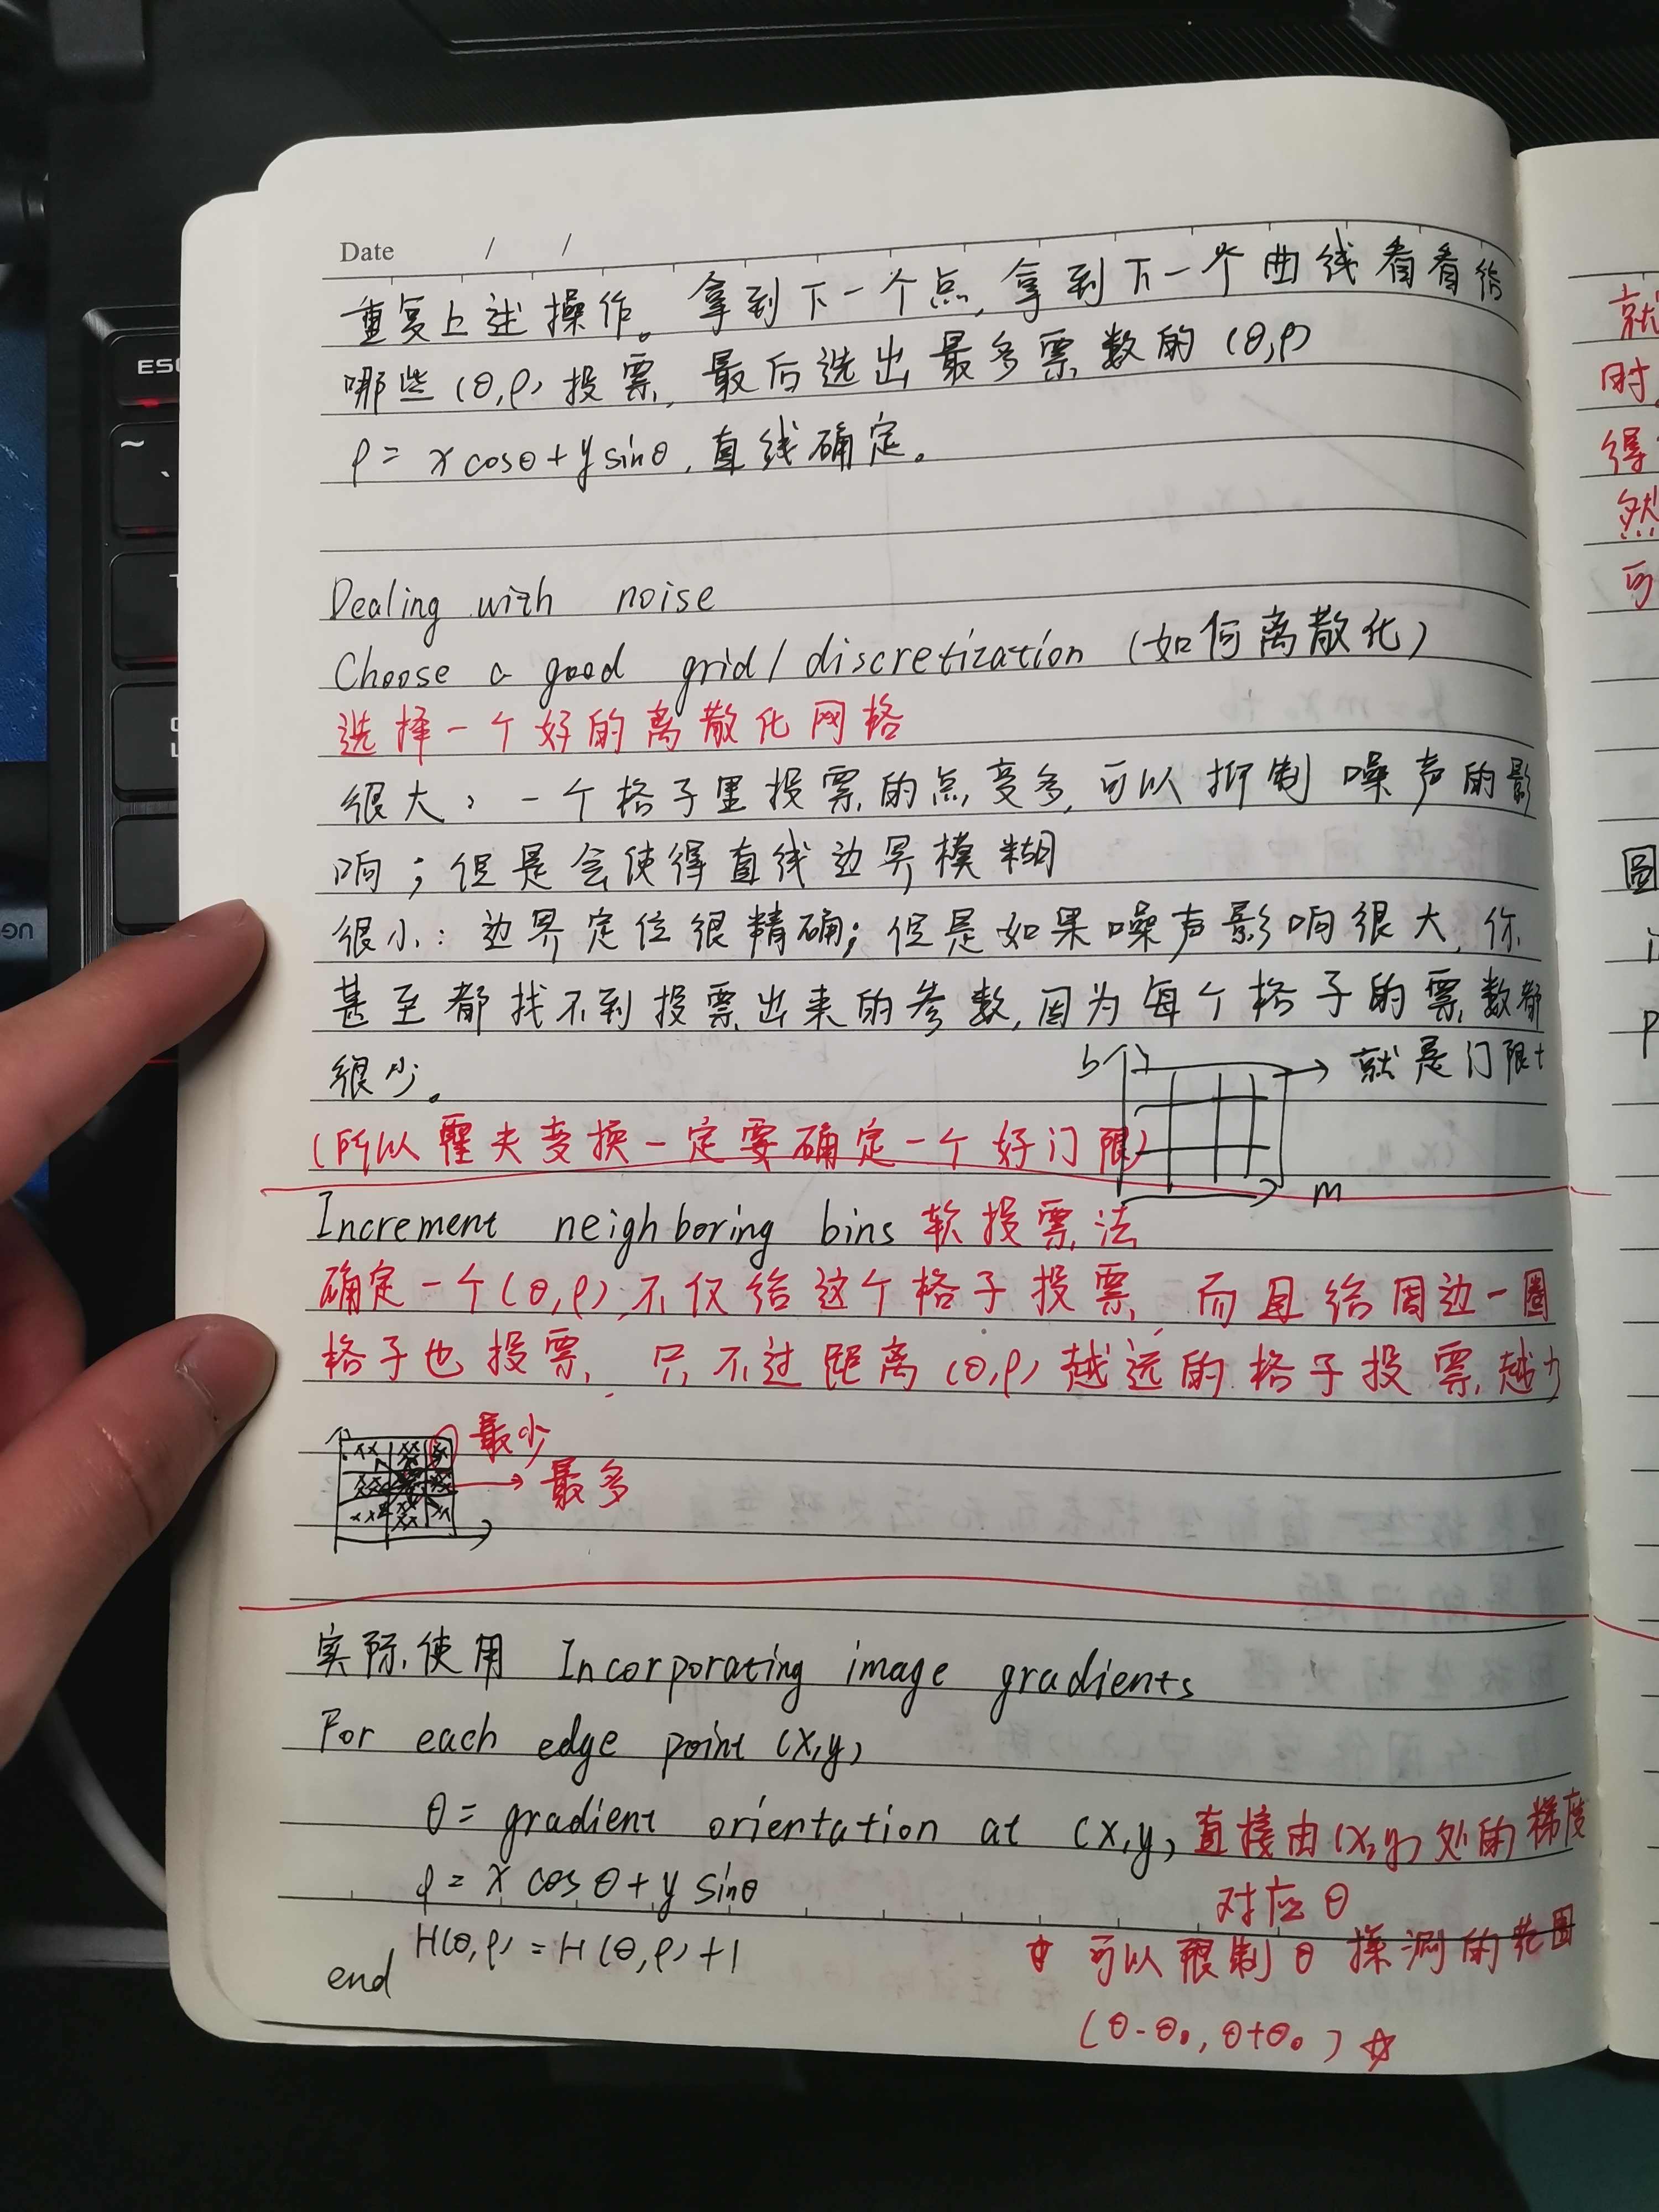 Date / /
重复上述操作。拿到下一个点,拿到下一个曲线看看给
哪些(θ,ρ)投票,最后选出最多票数的(θ,ρ)
ρ= x cosθ+y sinθ,直线确定。
Dealing with noise
Choose a good grid/discretization (如何离散化)
选择一个好的离散化网格
很大:一个格子里投票的点变多,可以抑制噪声的影
响;但是会使得直线边界模糊
很小:边界定位很精确;但是如果噪声影响很大,你
甚至都找不到投票出来的参数,因为每个格子的票数都
很少。
b
就是门限t
(所以霍夫变换一定要确定一个好门限)
m
Increment neighboring bins 软投票法
确定一个(θ,ρ),不仅给这个格子投票,而且给周边一圈
格子也投票,只不过距离(θ,ρ)越远的格子投票越
最少
最多
实际使用 Incorporating image gradients
For each edge point (x,y)
θ= gradient orientation at (x,y) 直接由(x,y)处的梯度
ρ = x cosθ+y sinθ
对应θ
H(θ,ρ) = H(θ,ρ)+1
☆ 可以限制θ探测的范围
end
(θ-θ₀, θ+θ₀) ☆
就
时
得
然
可
圆
ESC
~